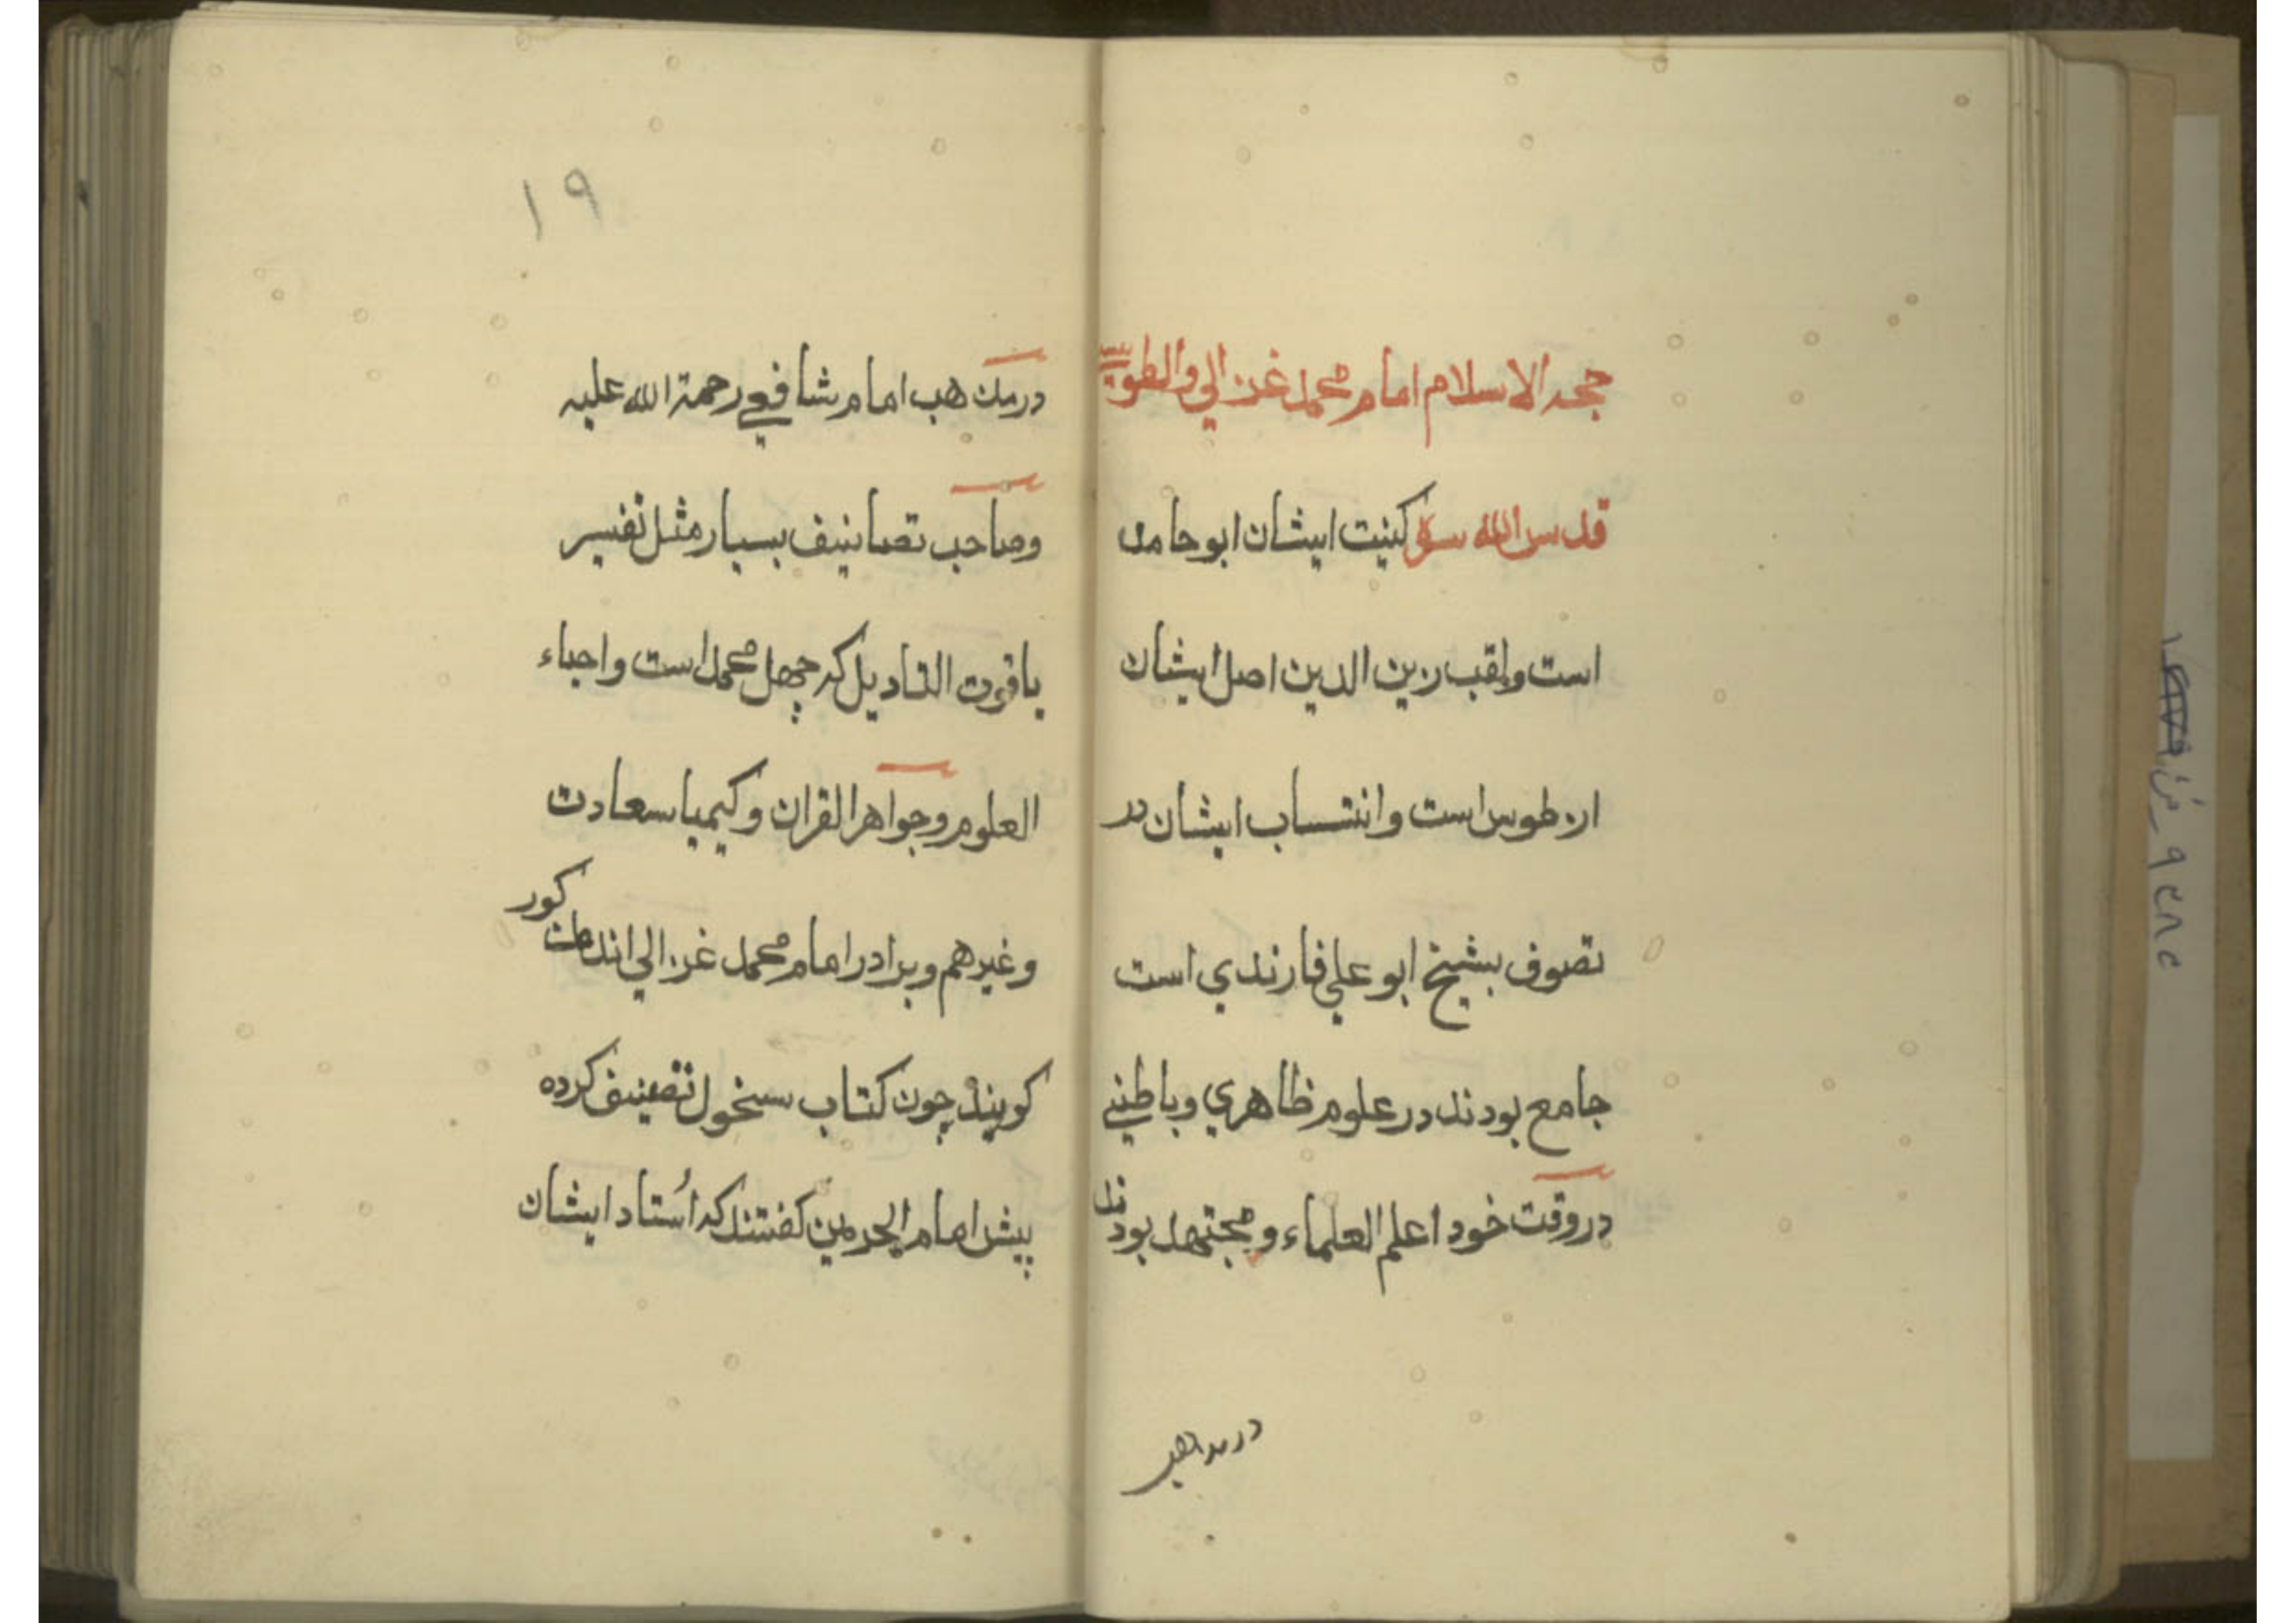 حجه الاسلام امام محمد غزالي والطوسي
قدس الله سره كنيت ايشان ابو حامد
است ولقب زين الدين اصل ايشان
از طوس است وانتساب ايشان در
تصوف بشيخ ابو علي فارندي است
جامع بودند در علوم ظاهري وباطني
در وقت خود اعلم العلماء ومجتهد بودند
در مذهب
١٩
در مذهب امام شافعي رحمة الله عليه
وصاحب تصانيف بسيار مثل تفسير
ياقوت التاديل كه چهل محمد است واحياء
العلوم وجواهر القران وكيميا سعادت
وغيرهم وبرادر امام محمد غزالي اند مذكور
كويند چون كتاب سنخول تصنيف كرده
پيش امام الحرمين كفتند كه اُستاد ايشان